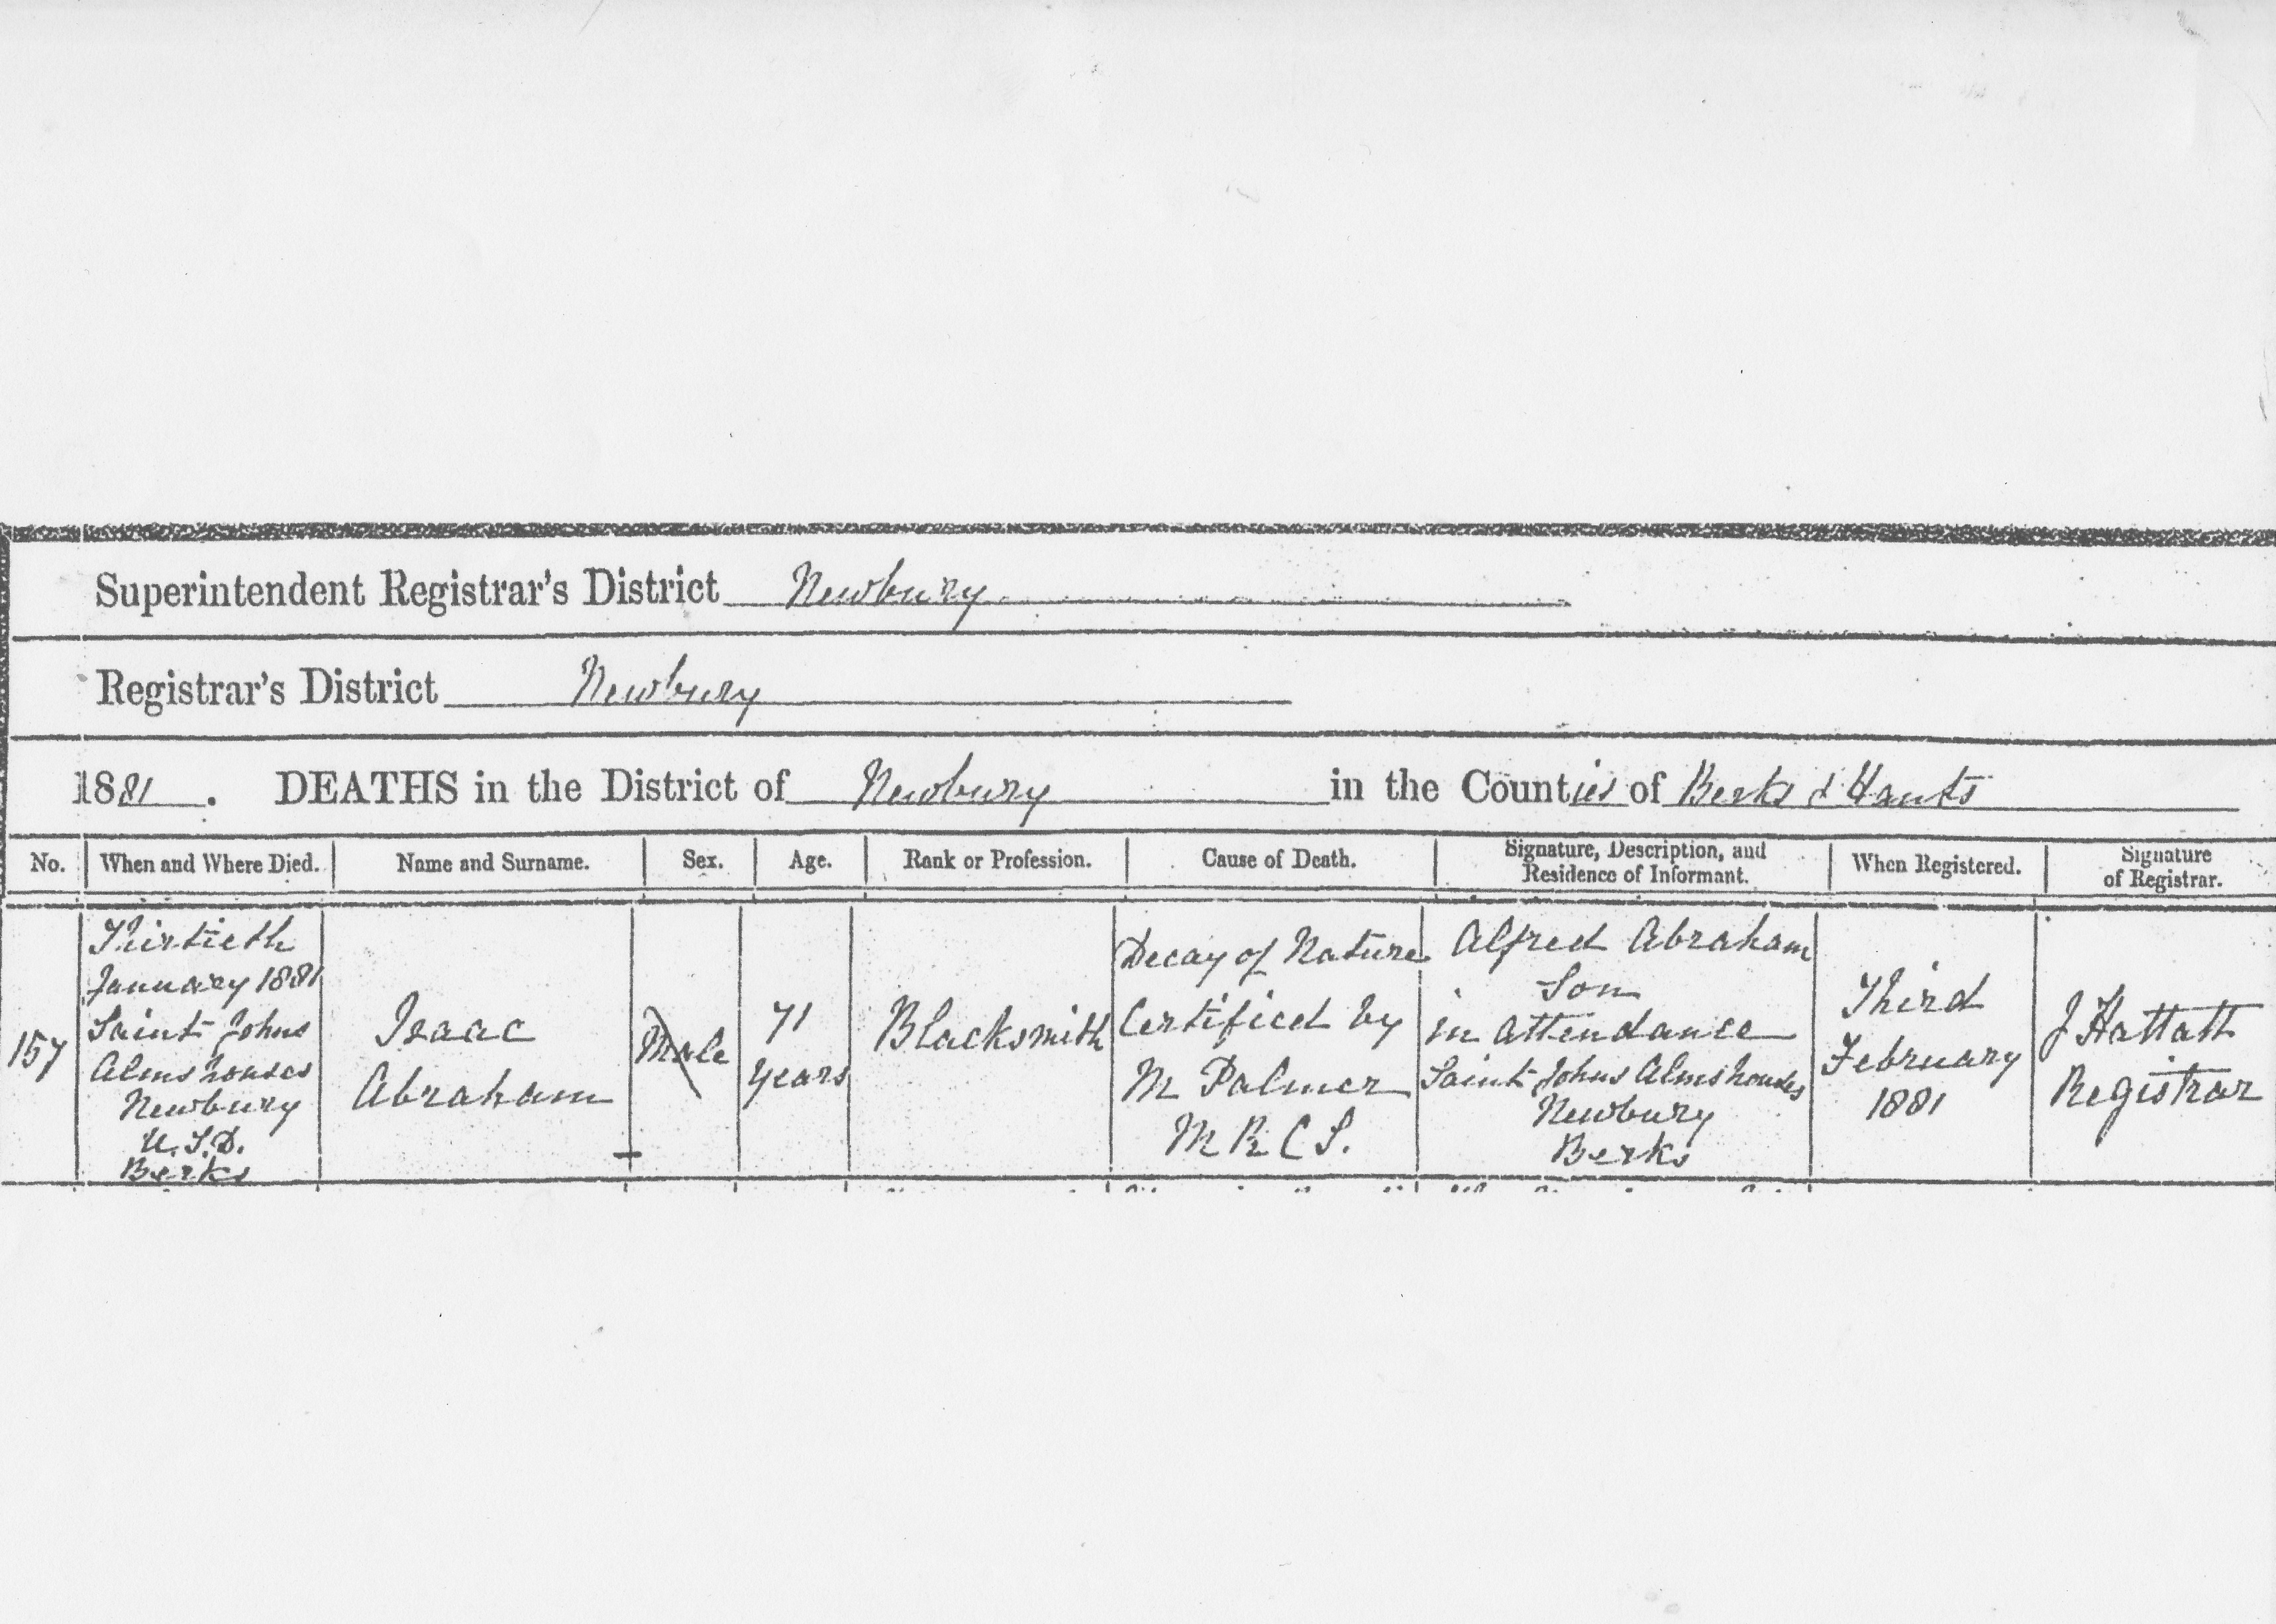 Superintendent Registrar's District Newbury
Registrar's District Newbury
1881. DEATHS in the District of Newbury in the Counties of Berks & Hants
No. When and Where Died. Name and Surname. Sex. Age. Rank or Profession. Cause of Death. Signature, Description, and Residence of Informant. When Registered. Signature of Registrar.
157
Thirtieth
January 1881
Saint Johns
Almshouses
Newbury
U.S.D.
Berks
Isaac
Abraham
Male
71
years
Blacksmith
Decay of Nature
Certified by
M Palmer
M R C S.
Alfred Abraham
Son
in attendance
Saint Johns Almshouses
Newbury
Berks
Third
February
1881
J Hattatt
Registrar